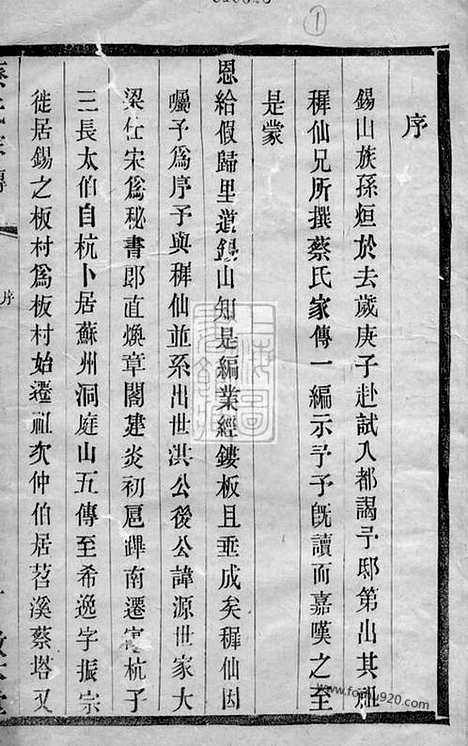 序
錫山族孫烜於去歲庚子赴試入都謁予邸第出其胞
穉仙兄所撰蔡氏家傳一編示予予旣讀而嘉嘆之至
是蒙
恩給假歸里道錫山知是編業經鏤板且垂成矣穉仙因
囑予爲序予與穉仙並系出世洪公後公諱源世家大
梁仕宋爲秘書郎直煥章閣建炎初扈蹕南遷寓杭子
三長太伯自杭卜居蘇州洞庭山五傳至希逸字振宗
徙居錫之板村爲板村始遷祖次仲伯居苕溪蔡塔又
序
1